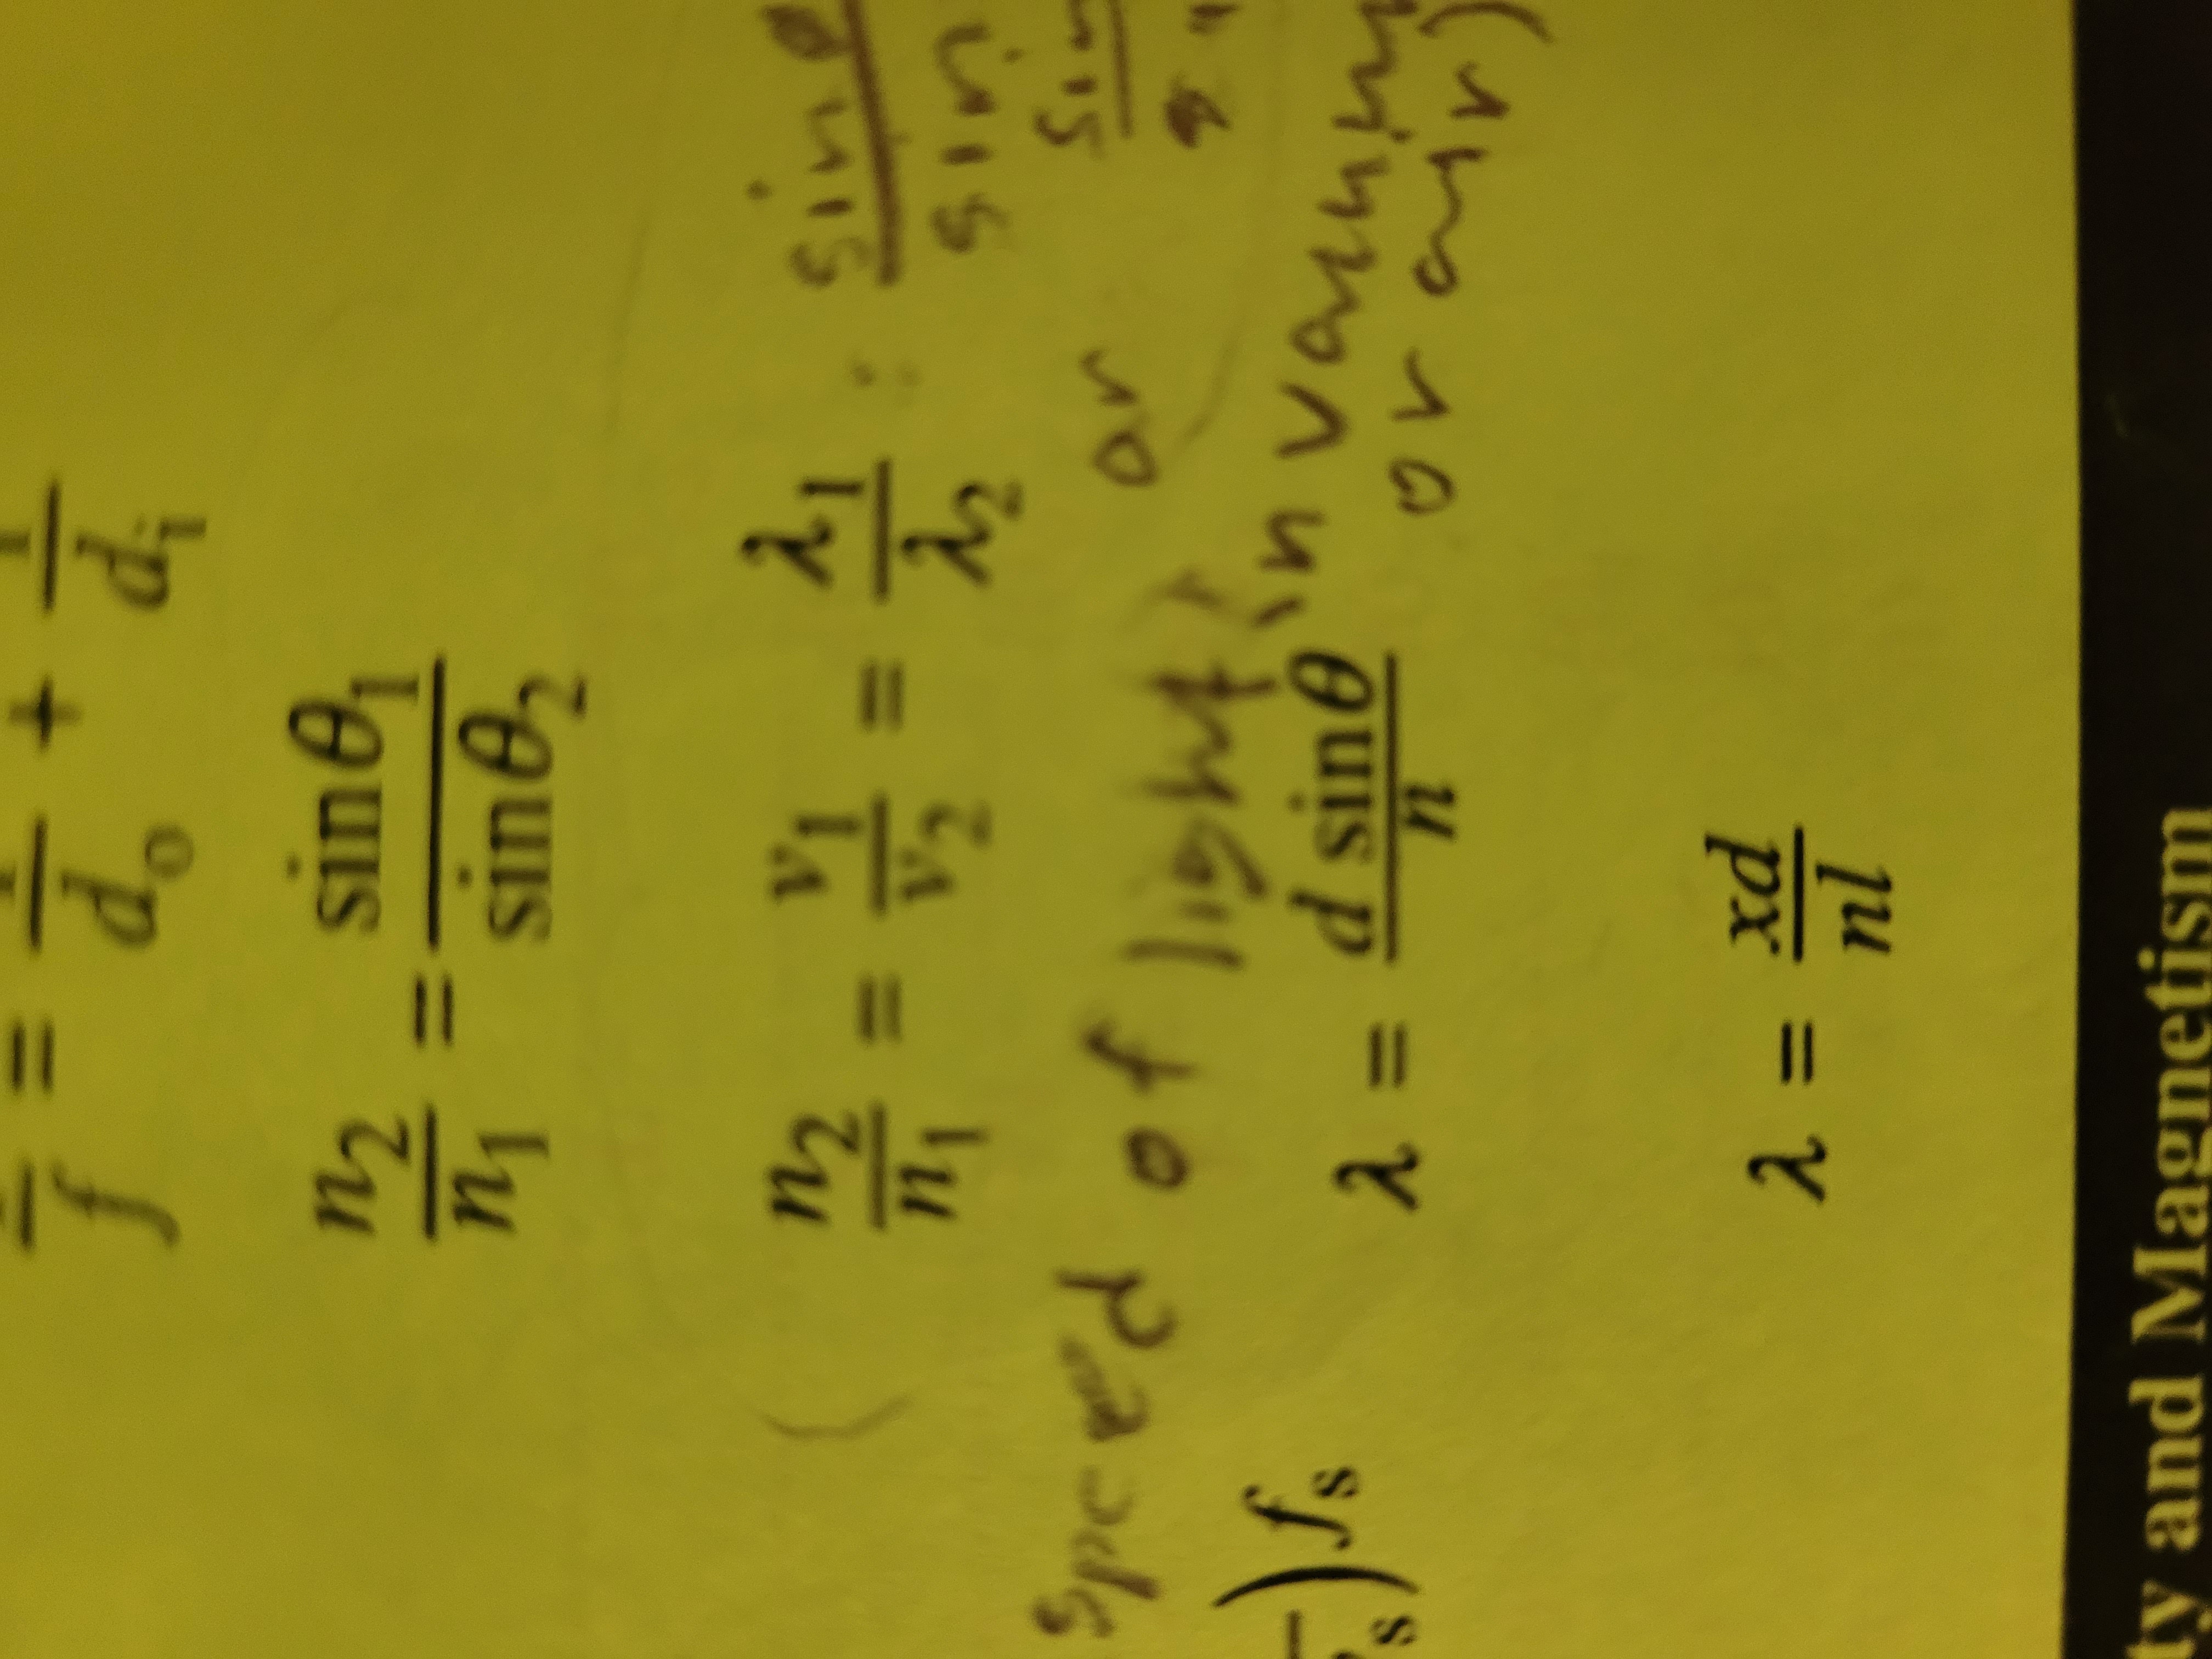 1/f = 1/d₀ + 1/dᵢ
n₂/n₁ = sinθ₁/sinθ₂
n₂/n₁ = v₁/v₂ = λ₁/λ₂ : sin
sin
sin
speed of light or
in vacuum
or air)
)fₛ λ = d sinθ/n
λ = xd/nl
ty and Magnetism